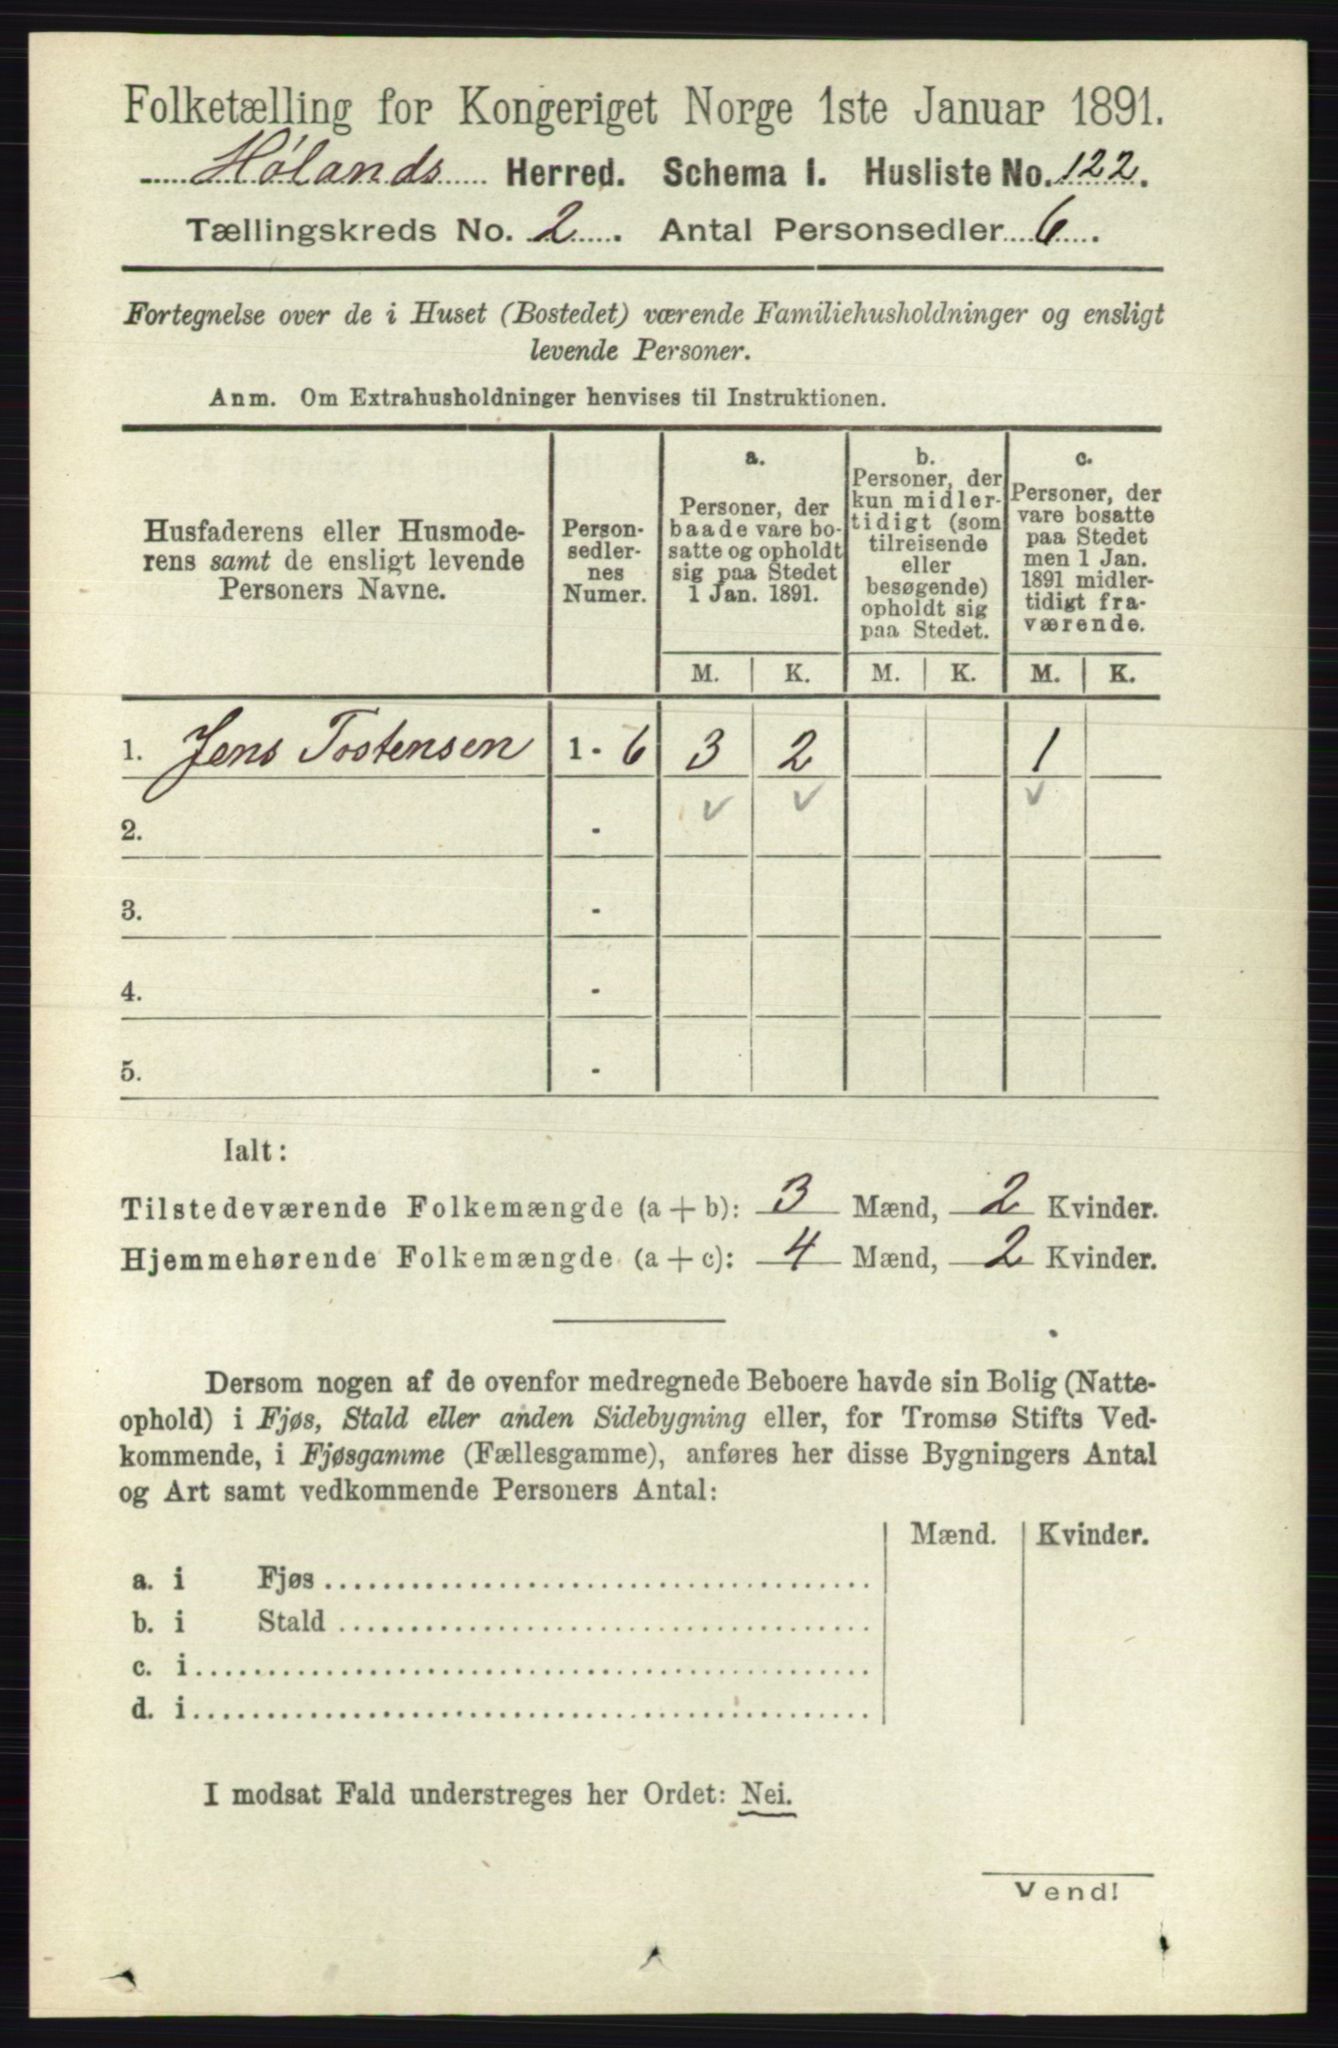 Folketælling for Kongeriget Norge 1ste Januar 1891.
Hølands Herred. Schema I. Husliste No. 122.
Tællingskreds No. 2. Antal Personsedler 6.
Fortegnelse over de i Huset (Bostedet) værende Familiehusholdninger og ensligt
levende Personer.
Anm. Om Extrahusholdninger henvises til Instruktionen.
Husfaderens eller Husmode-
rens samt de ensligt levende
Personers Navne.
Person-
sedler-
nes
Numer.
a.
Personer, der
baade vare bo-
satte og opholdt
sig paa Stedet
1 Jan. 1891.
b.
Personer, der
kun midler-
tidigt (som
tilreisende
eller
besøgende)
opholdt sig
paa Stedet.
c.
Personer, der
vare bosatte
paa Stedet
men 1 Jan.
1891 midler-
tidigt fra-
værende.
M. K. M. K. M. K.
1. Jens Tostensen 1 - 6 3 2 1
2. -
3. -
4. -
5. -
Ialt:
Tilstedeværende Folkemængde (a + b): 3 Mænd, 2 Kvinder.
Hjemmehørende Folkemængde (a + c): 4 Mænd, 2 Kvinder.
Dersom nogen af de ovenfor medregnede Beboere havde sin Bolig (Natte-
ophold) i Fjøs, Stald eller anden Sidebygning eller, for Tromsø Stifts Ved-
kommende, i Fjøsgamme (Fællesgamme), anføres her disse Bygningers Antal
og Art samt vedkommende Personers Antal:
Mænd. Kvinder.
a. i Fjøs
b. i Stald
c. i
d. i
I modsat Fald understreges her Ordet: Nei.
Vend!